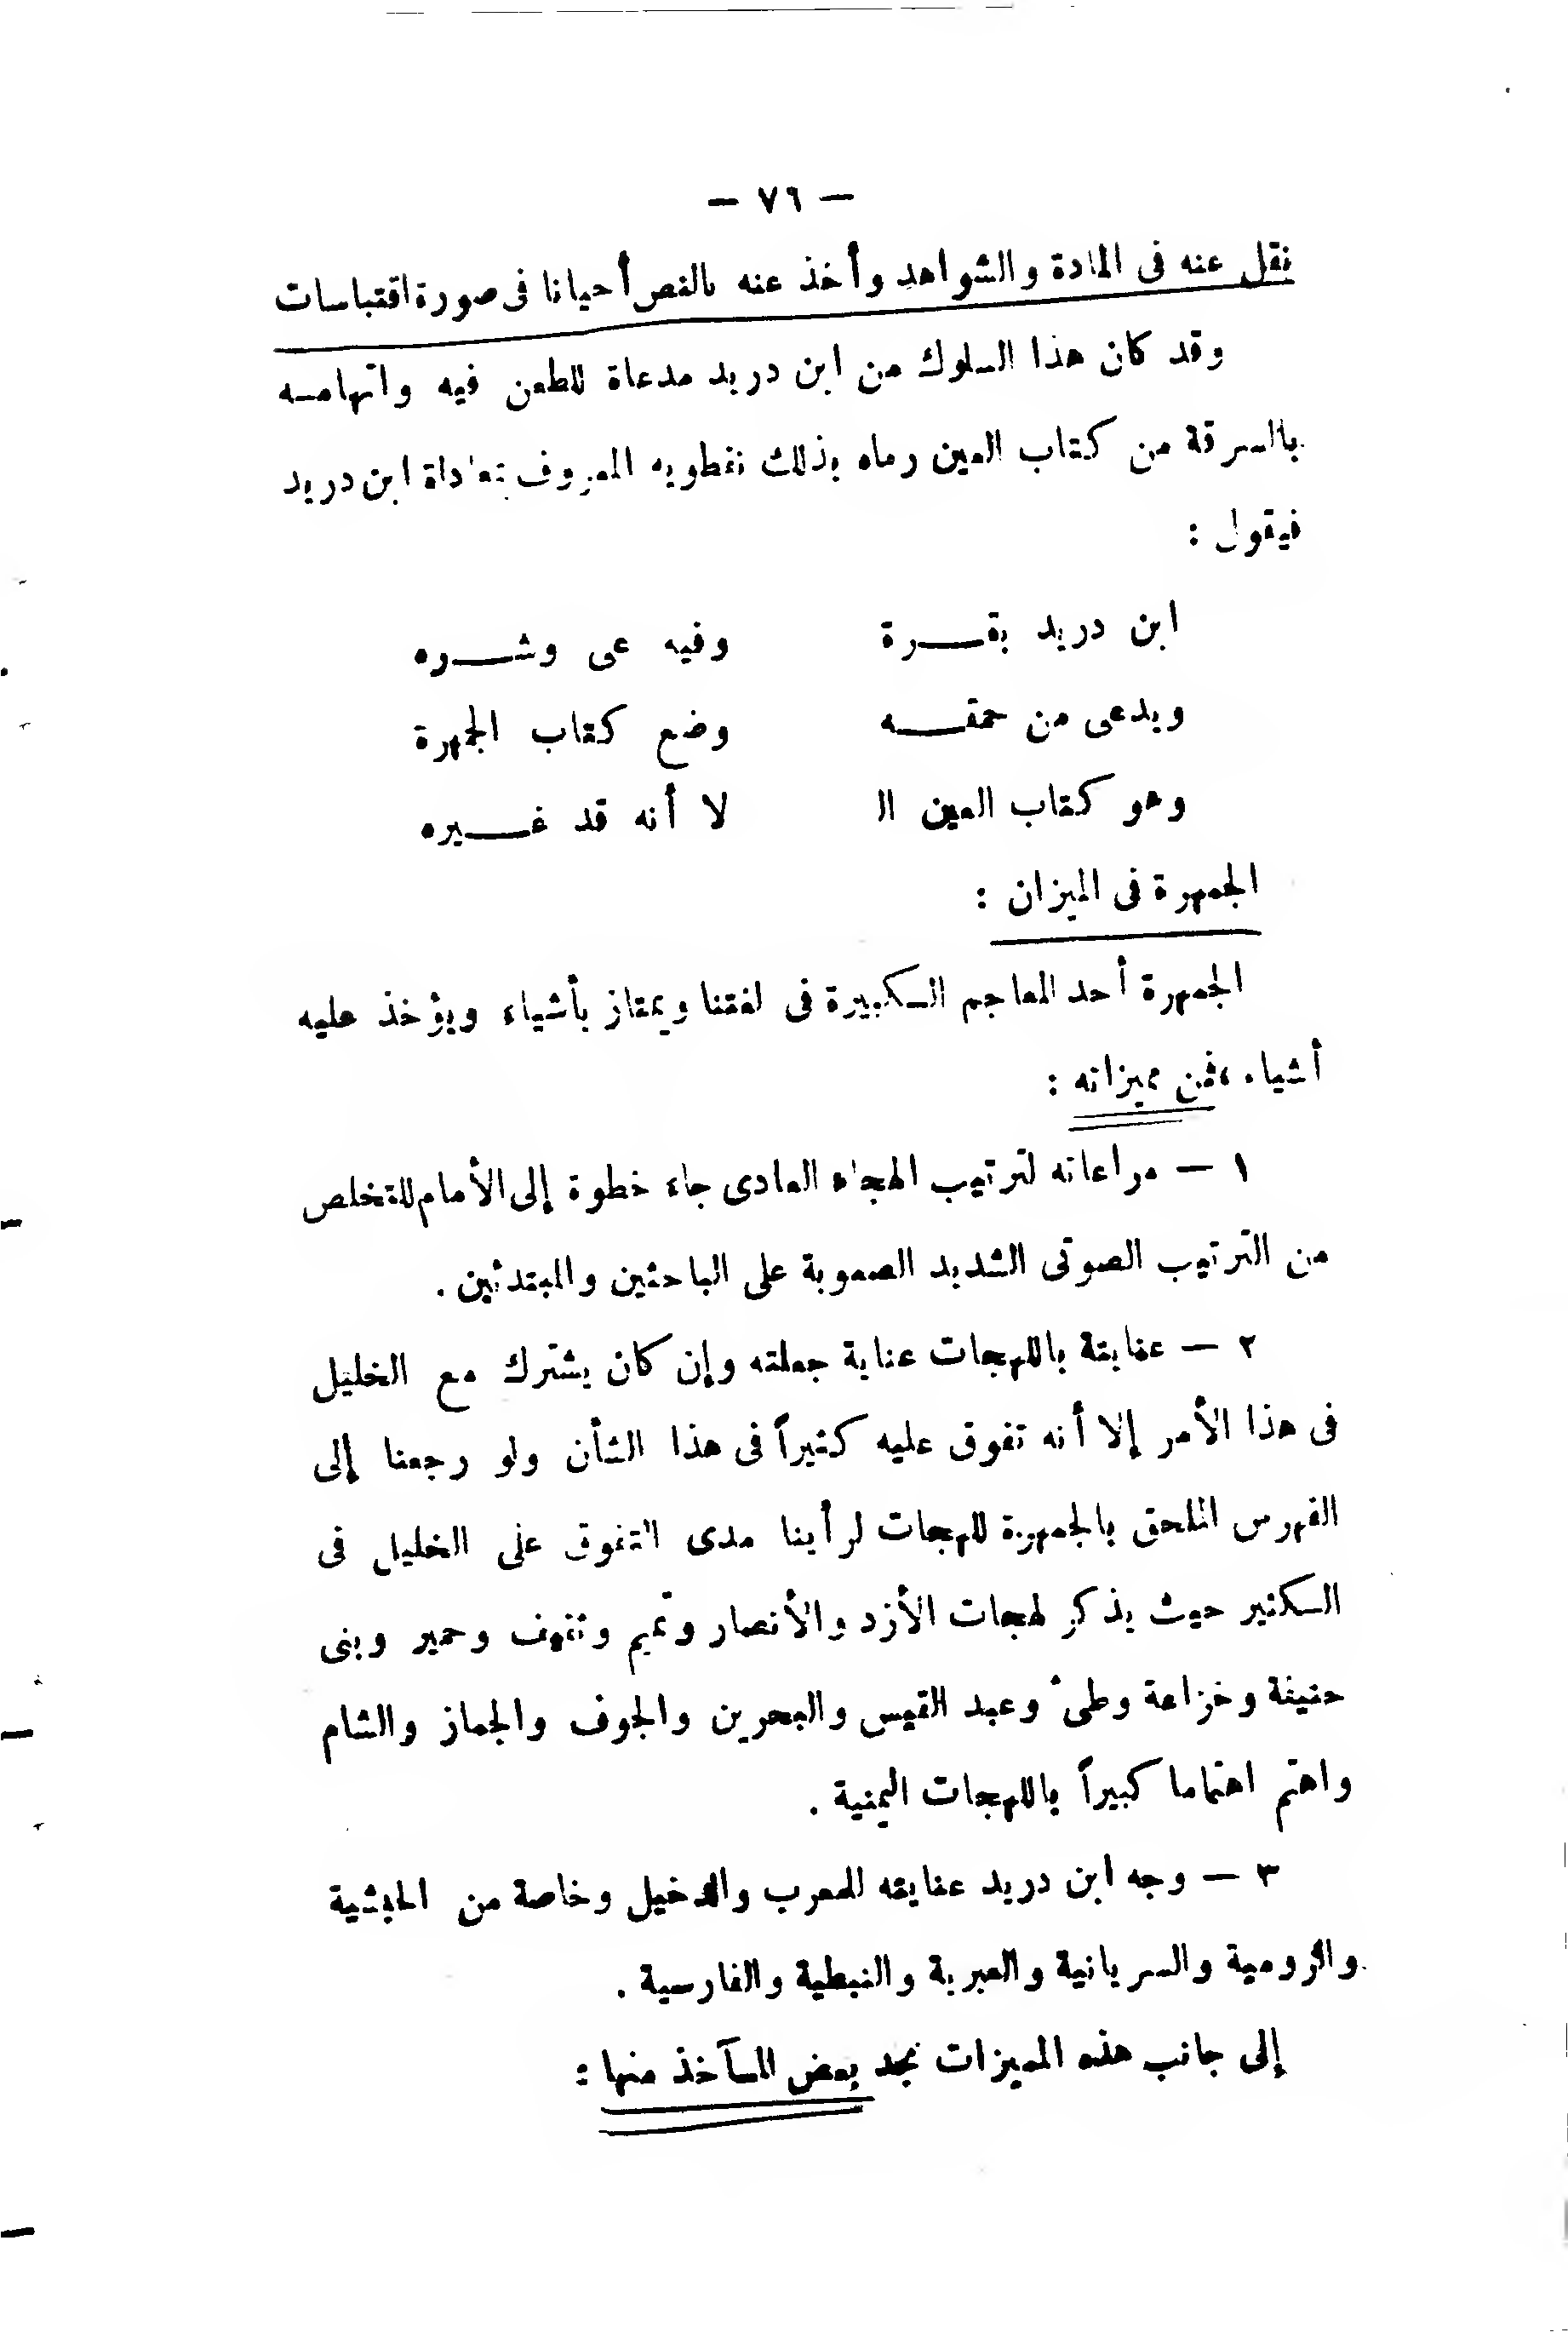 — ٧٦ —
نقل عنه فى المادة والشواهد وأخذ عنه بالنص أحيانا فى صورة اقتباسات
وقد كان هذا السلوك من ابن دريد مدعاة للطعن فيه واتهامـه
بالسرقة من كتاب العين رماه بذلك نفطويه المعروف بمعاداة ابن دريد
فيقول :
ابن دريد بقـــرة وفيه عى وشـــره
ويدعى من حمقـــه وضع كتاب الجمهرة
وهو كتاب العين ال لا أنه قد غـــيره
الجمهرة فى الميزان :
الجمهرة أحد المعاجم الكبيرة فى لغتنا ويمتاز بأشياء ويؤخذ عليه
أشياء ، فمن مميزاته :
١ — مراعاته لترتيب الهجاء العادى جاء خطوة إلى الأمام للتخلص
من الترتيب الصوتى الشديد الصعوبة على الباحثين والمبتدئين .
٢ — عنايتة باللهجات عناية جعلته وإن كان يشترك مع الخليل
فى هذا الأمر إلا أنه تفوق عليه كثيراً فى هذا الشأن ولو رجعنا إلى
الفهرس الملحق بالجمهرة للهجات لرأينا مدى التفوق على الخليل فى
الكثير حيث يذكر لهجات الأزد والأنصار وتميم وثقيف وحمير وبنى
حنيفة وخزاعة وطىء وعبد القيس والبحرين والجوف والحجاز والشام
واهتم اهتماما كبيراً باللهجات اليمنية .
٣ — وجه ابن دريد عنايته للمعرب والدخيل وخاصة من الحبشية
والرومية والسريانية والعبرية والنبطية والفارسية .
إلى جانب هذه المميزات نجد بعض المآخذ منها :